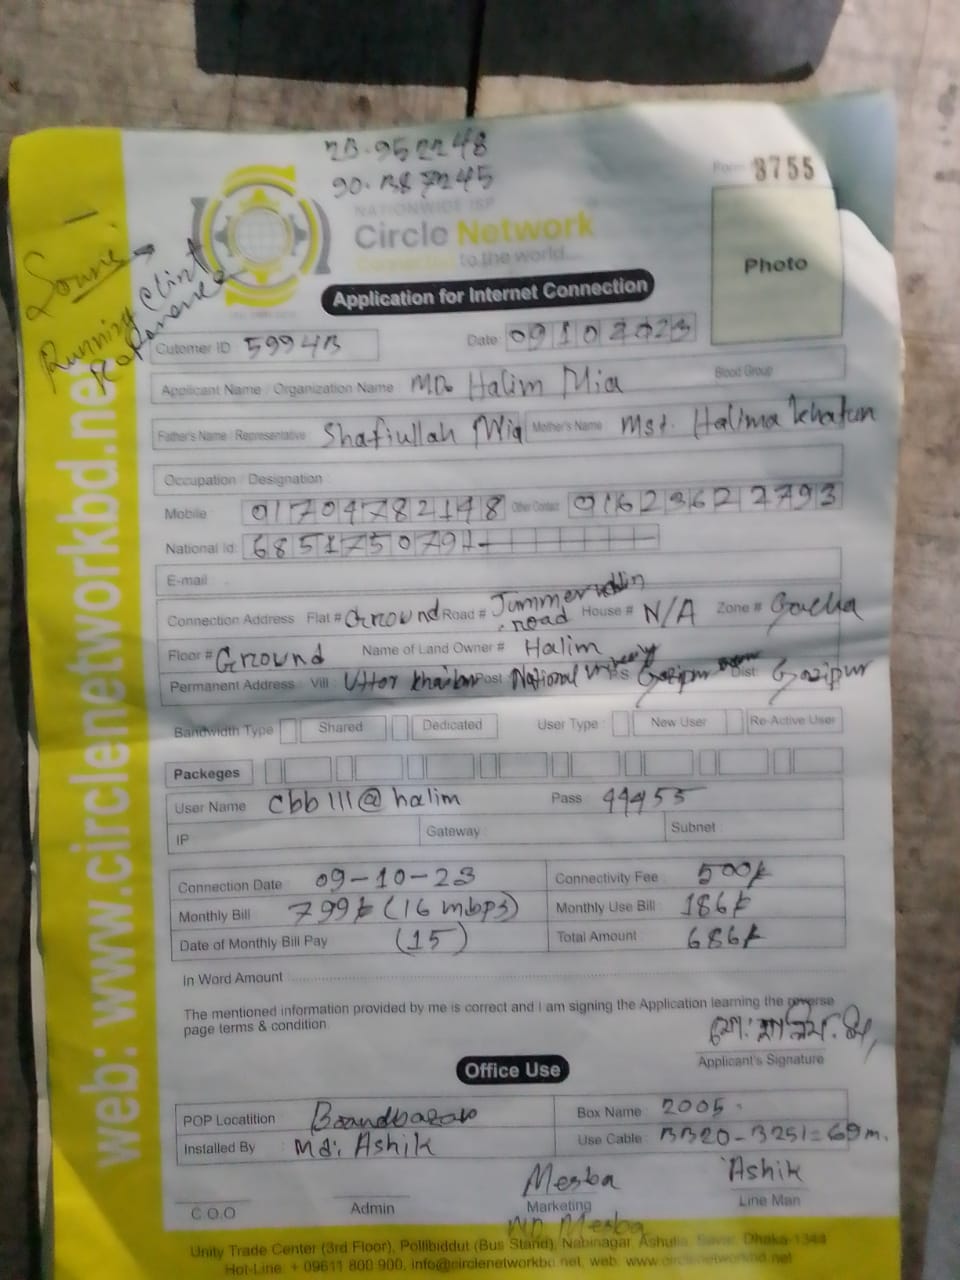 Form 3755
NATIONWIDE ISP
Circle Network
Connected to the world....
Application for Internet Connection
Photo
Source
Running Client
Cutomer ID 59943
Date: 09102023
Applicant Name / Organization Name MD. Halim Mia
Blood Group
Father's Name / Representative Shafiullah Mia Mother's Name Mst. Halima Khatun
Occupation / Designation
Mobile 01704782148 Other Contact 01623627793
National Id: 6851750791
E-mail
Connection Address Flat # Ground Road # Jummeruddin road House # N/A Zone # Gacha
Floor # Ground Name of Land Owner # Halim
Permanent Address : Vill Uttor Khailkur Post National University P.S Gazipur Dist: Gazipur
Bandwidth Type Shared Dedicated User Type : New User Re-Active User
Packeges
User Name cbb111@halim Pass 44455
IP Gateway Subnet
Connection Date 09-10-23 Connectivity Fee 500/-
Monthly Bill 799/- (16 mbps) Monthly Use Bill 186/-
Date of Monthly Bill Pay (15) Total Amount 686/-
In Word Amount
The mentioned information provided by me is correct and I am signing the Application learning the reverse
page terms & condition
মো: হালিম মিয়া
Applicant's Signature
Office Use
POP Locatition Boardbazar Box Name 2005
Installed By : Md: Ashik Use Cable 3320-3251=69m.
Mesba Ashik
C.O.O Admin Marketing Line Man
MD Mesba
Unity Trade Center (3rd Floor), Pollibiddut (Bus Stand), Nabinagar, Ashulia, Savar, Dhaka-1344
Hot-Line: + 09611 800 900, info@circlenetworkbd.net, web: www.circlenetworkbd.net
web: www.circlenetworkbd.net